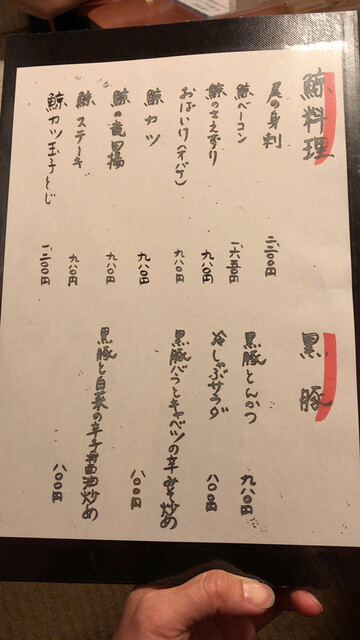 鯨料理
尾の身刺 二、二〇〇円
鯨ベーコン 一、六五〇円
鯨のさえずり 九八〇円
おばいけ(オバケ) 九八〇円
鯨カツ 九八〇円
鯨の竜田揚 九八〇円
鯨ステーキ 九八〇円
鯨カツ玉子とじ 一、二〇〇円
黒豚
黒豚とんかつ 九八〇円
冷しゃぶサラダ 八〇〇円
黒豚バラとキャベツの辛みそ炒め 八〇〇円
黒豚と白菜の辛子醤油炒め 八〇〇円